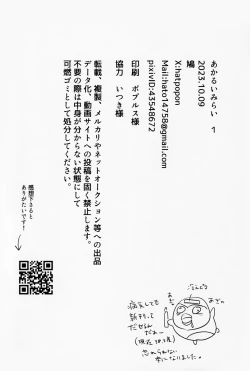 あかるいみらい 1
2023.10.09
鳩
X:hatpopon
Mail:hato14758@gmail.com
pixivID:43548672
印刷 ポプルス様
協力 いつき様
転載、複製、メルカリやネットオークション等への出品
データ化、動画サイトへの投稿を固く禁止します。
不要の際は中身が分からない状態にして
可燃ゴミとして処分してください。
感想下さると
ありがたいです！
病気しても
新刊って
だせん
だわー